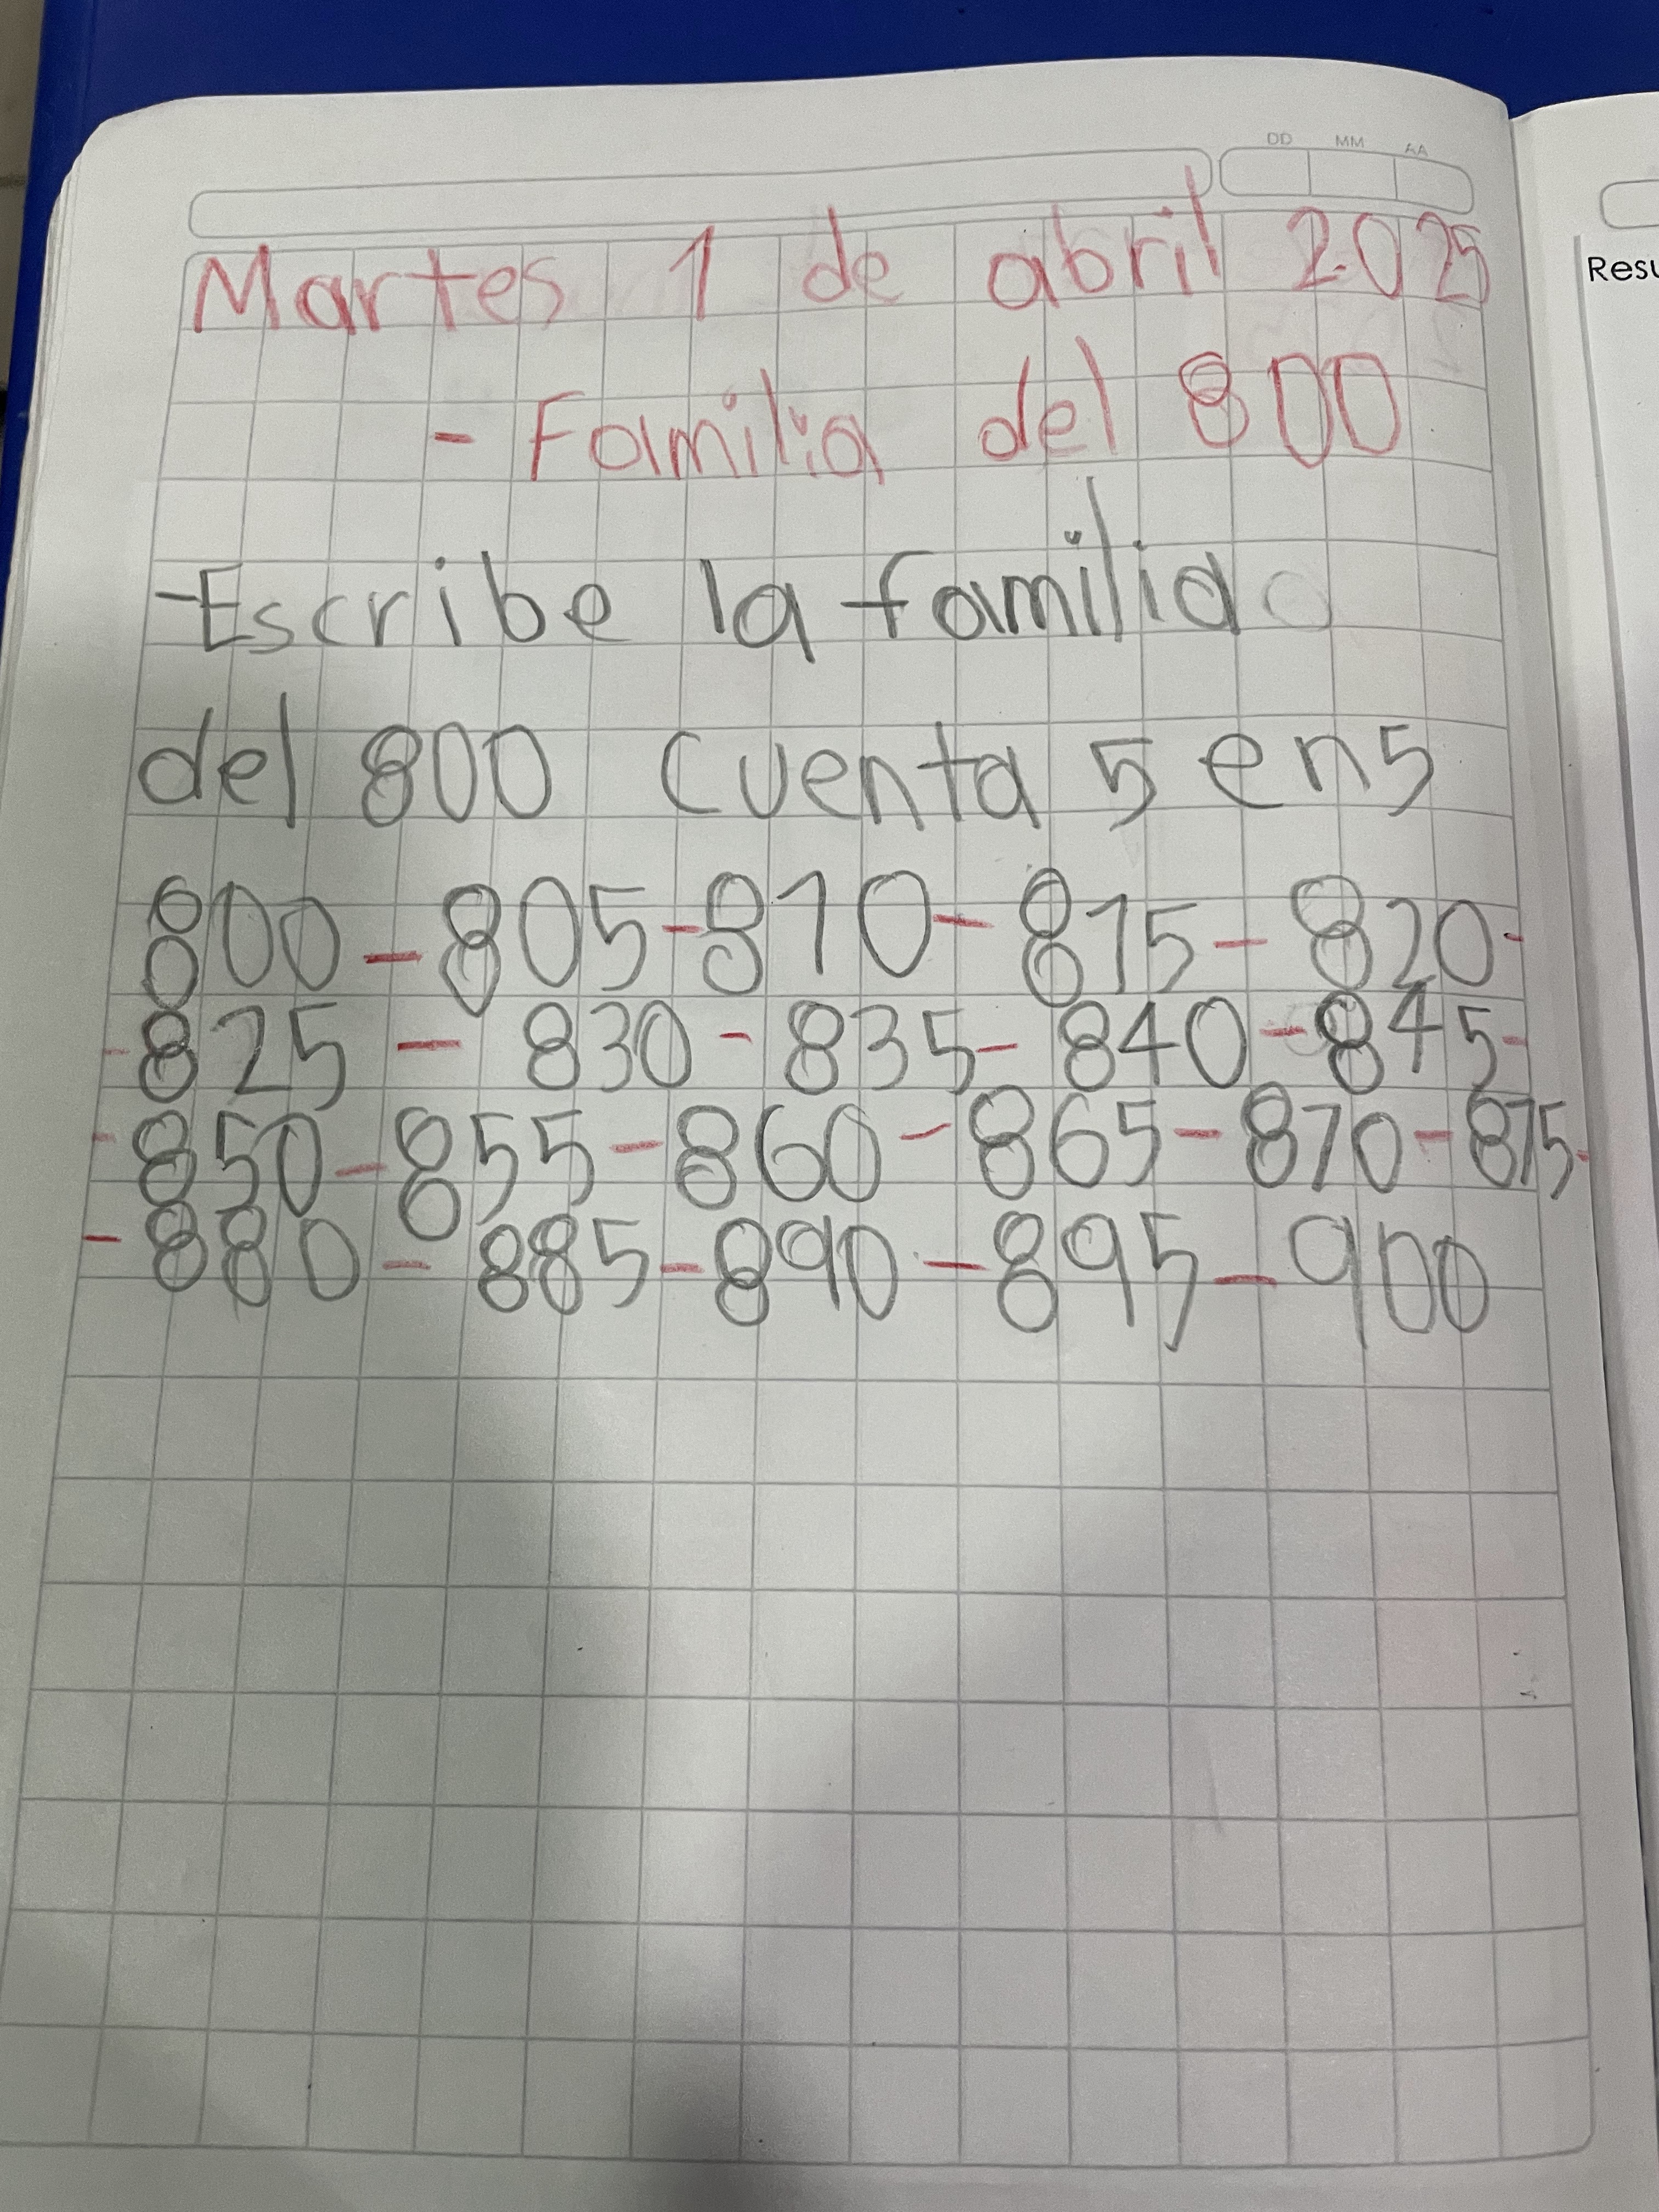 DD MM AA
Martes 1 de abril 2025
- Familia del 800
-Escribe la familia
del 800 cuenta 5 en 5
800 - 805 - 810 - 815 - 820 -
- 825 - 830 - 835 - 840 - 845 -
- 850 - 855 - 860 - 865 - 870 - 875 -
- 880 - 885 - 890 - 895 - 900